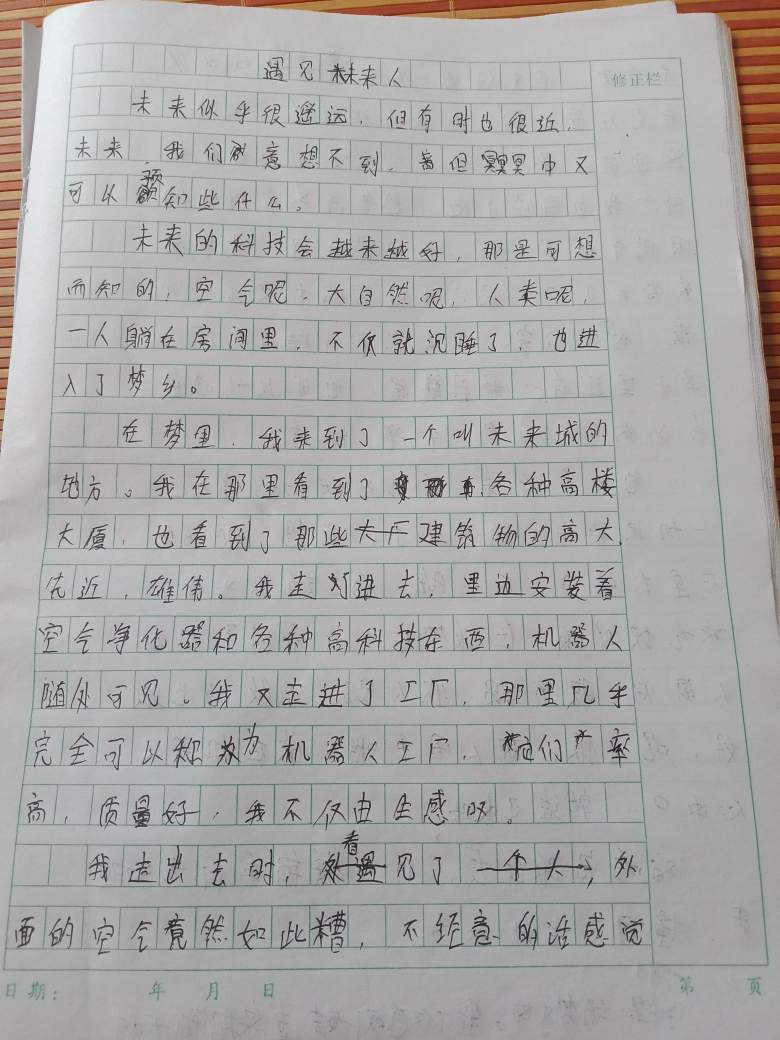 遇见未来人
修正栏
未来似乎很遥远，但有时也很近，
未来，我们意想不到，但冥冥中又
可以预知些什么。
未来的科技会越来越好，那是可想
而知的，空气呢，大自然呢，人类呢，
一人躺在房间里，不仅就沉睡了，也进
入了梦乡。
在梦里，我来到了一个叫未来城的
地方。我在那里看到了各种高楼
大厦，也看到了那些大厂建筑物的高大，
先近，雄伟。我走进去，里边安装着
空气净化器和各种高科技东西，机器人
随处可见。我又走进了工厂，那里几乎
完全可以称为机器人工厂，它们率
高，质量好，我不仅由生感叹。
我走出去时，看见了，外
面的空气竟然如此糟，不经意的话感觉
日期： 年 月 日
第 页